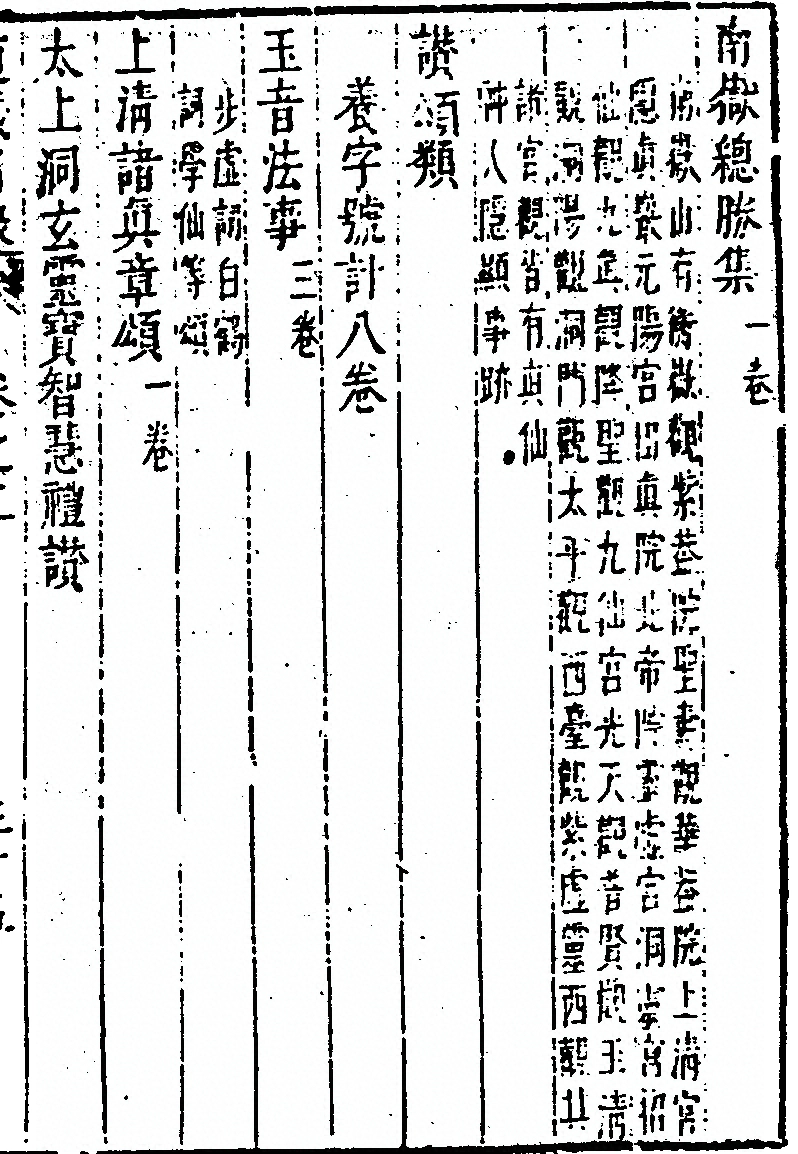 南嶽總勝集一卷
南嶽山有衡嶽觀紫蓋院聖壽觀華蓋院上清宮
隱真巖元陽宮出真院北帝院玉虛宮洞靈宮招
仙觀九真觀降聖觀九仙宮光天觀普賢觀玉清
觀洞陽觀洞門觀太平觀西臺觀紫虛靈西觀共
諸宮觀皆有真仙
降人隱顯事跡
讚頌類
養字號計八卷
玉音法事三卷
步虛詞白鶴
詞學仙等頌
上清諸真章頌一卷
太上洞玄靈寶智慧禮讚